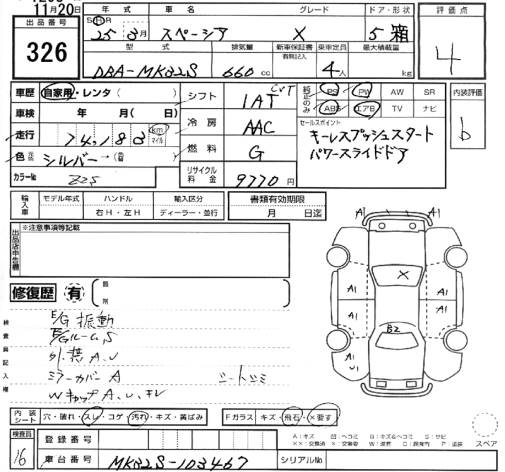 11月20日
出品番号
326
年式 車名 グレード ドア・形状
25 3月 スペーシア X 5 箱
型式 排気量 新車保証書 乗車定員 最大積載量
DBA-MK32S 660 cc 4人 kg
評価点
4
車歴 自家用・レンタ ( )
車検 年 月( 日)
走行 74,183 km マイル
色 シルバー
カラーNo Z2S
シフト 1AT CVT
冷房 AAC
燃料 G
リサイクル料金 9770 円
PS PW AW SR
ABS エアB TV ナビ
セールスポイント
キーレスプッシュスタート
パワースライドドア
内装評価
b
輸入車 モデル年式 ハンドル 輸入区分
右H・左H ディーラー・並行
書類有効期限
月 日迄
※注意事項等記載
修復歴 有
E/G 振動
E/Gルーム S
外装 A、U
ミラーカバー A シートシミ
Wキャップ A、U、キレ
検査員記入欄
A1 A1
A1 A1
X
B2
A1 A1
内装シート 穴・破れ・スレ・コゲ・汚れ・キズ・黄ばみ
Fガラス キズ・飛石・×要す
スペア
検査員 16
登録番号
車台番号 MK32S-103467
シリアルNo